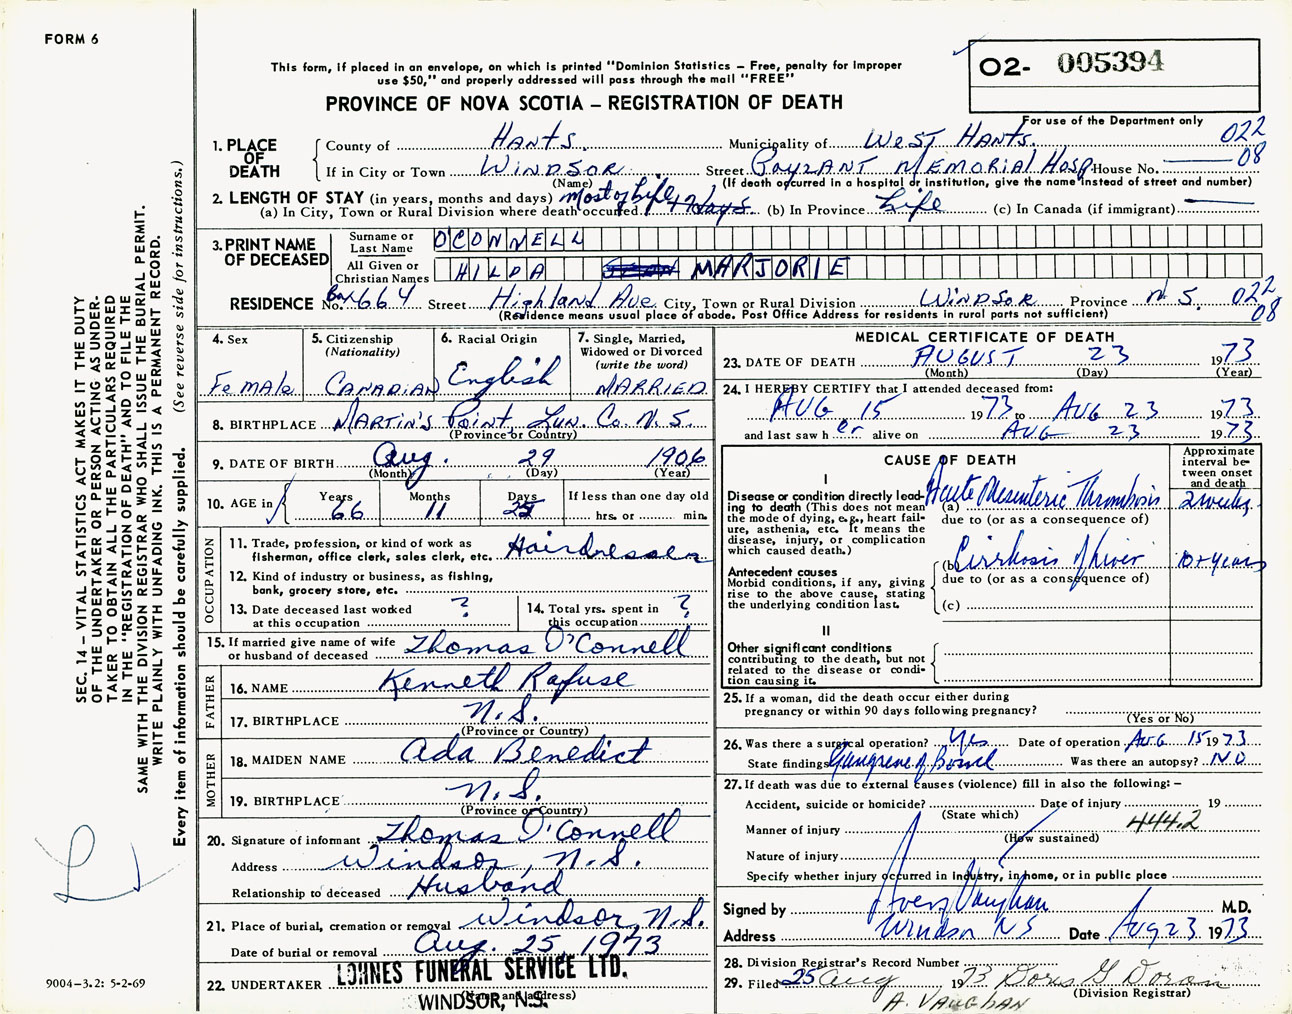 FORM 6
This form, if placed in an envelope, on which is printed "Dominion Statistics – Free, penalty for improper
use $50," and properly addressed will pass through the mail "FREE"
PROVINCE OF NOVA SCOTIA – REGISTRATION OF DEATH
02- 005394
For use of the Department only
1. PLACE OF DEATH
County of HANTS. Municipality of WEST HANTS. 022
If in City or Town WINDSOR Street PAYZANT MEMORIAL HOSP House No. 08
(Name) (If death occurred in a hospital or institution, give the name instead of street and number)
2. LENGTH OF STAY (in years, months and days) most of life
(a) In City, Town or Rural Division where death occurred. Days. (b) In Province Life (c) In Canada (if immigrant)
3. PRINT NAME OF DECEASED
Surname or Last Name OCONNELL
All Given or Christian Names HILDA MARJORIE
RESIDENCE No. Box 664 Street Highland Ave City, Town or Rural Division WINDSOR Province N.S. 022
(Residence means usual place of abode. Post Office Address for residents in rural parts not sufficient) 08
4. Sex
Female
5. Citizenship
(Nationality)
CANADIAN
6. Racial Origin
English
7. Single, Married,
Widowed or Divorced
(write the word)
MARRIED
8. BIRTHPLACE MARTIN'S Point, Lun. Co. N.S.
(Province or Country)
9. DATE OF BIRTH Aug. 29 1906
(Month) (Day) (Year)
10. AGE in Years Months Days If less than one day old
66 11 25 hrs. or min.
OCCUPATION
11. Trade, profession, or kind of work as
fisherman, office clerk, sales clerk, etc. Hairdresser
12. Kind of industry or business, as fishing,
bank, grocery store, etc.
13. Date deceased last worked
at this occupation ?
14. Total yrs. spent in
this occupation ?
15. If married give name of wife
or husband of deceased Thomas O'Connell
FATHER
16. NAME Kenneth Rafuse
17. BIRTHPLACE N.S.
(Province or Country)
MOTHER
18. MAIDEN NAME Ada Benedict
19. BIRTHPLACE N.S.
(Province or Country)
20. Signature of informant Thomas O'Connell
Address Windsor, N.S.
Relationship to deceased Husband
21. Place of burial, cremation or removal Windsor, N.S.
Date of burial or removal Aug. 25, 1973
22. UNDERTAKER LOHNES FUNERAL SERVICE LTD.
(Name and address)
WINDSOR, N.S.
MEDICAL CERTIFICATE OF DEATH
23. DATE OF DEATH AUGUST 23 1973
(Month) (Day) (Year)
24. I HEREBY CERTIFY that I attended deceased from:
AUG 15 1973 to AUG 23 1973
and last saw her alive on AUG 23 1973
CAUSE OF DEATH
Approximate
interval be-
tween onset
and death
I
Disease or condition directly lead-
ing to death (This does not mean
the mode of dying, e.g., heart fail-
ure, asthenia, etc. It means the
disease, injury, or complication
which caused death.)
(a) Acute Mesenteric Thrombosis 2 weeks
due to (or as a consequence of)
(b) Cirrhosis of liver 10+ years
due to (or as a consequence of)
(c)
Antecedent causes
Morbid conditions, if any, giving
rise to the above cause, stating
the underlying condition last.
II
Other significant conditions
contributing to the death, but not
related to the disease or condi-
tion causing it.
25. If a woman, did the death occur either during
pregnancy or within 90 days following pregnancy?
(Yes or No)
26. Was there a surgical operation? Yes Date of operation AUG 15 1973
State findings Gangrene of Bowel Was there an autopsy? NO
27. If death was due to external causes (violence) fill in also the following: –
Accident, suicide or homicide? Date of injury 19
(State which)
444.2
Manner of injury
(How sustained)
Nature of injury
Specify whether injury occurred in industry, in home, or in public place
Signed by Avery Vaughan M.D.
Address Windsor NS Date Aug 23 1973
28. Division Registrar's Record Number
29. Filed 25 Aug 1973 Doris G Doran
(Division Registrar)
A. VAUGHAN
SEC. 14 – VITAL STATISTICS ACT MAKES IT THE DUTY
OF THE UNDERTAKER OR PERSON ACTING AS UNDER-
TAKER TO OBTAIN ALL THE PARTICULARS REQUIRED
IN THE "REGISTRATION OF DEATH" AND TO FILE THE
SAME WITH THE DIVISION REGISTRAR WHO SHALL ISSUE THE BURIAL PERMIT.
WRITE PLAINLY WITH UNFADING INK. THIS IS A PERMANENT RECORD.
Every item of information should be carefully supplied. (See reverse side for instructions.)
9004–3.2: 5-2-69